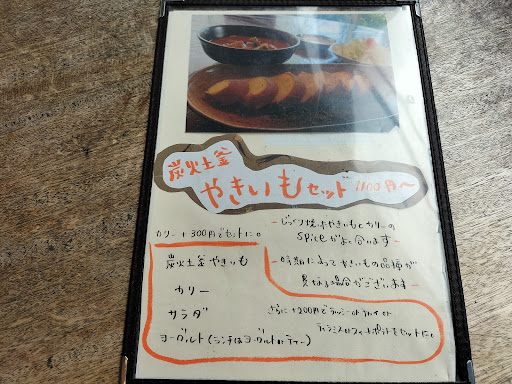 炭火土釜
やきいもセット 1100円〜
カリー +300円でセットに。
- じっくり焼いたやきいもとカリーの
Spiceがよく合います -
- 時期によってやきいもの品種が
異なる場合がございます -
炭火土釜やきいも
カリー
サラダ
ヨーグルト(ランチはヨーグルトorティー)
さらに +200円で
セットに